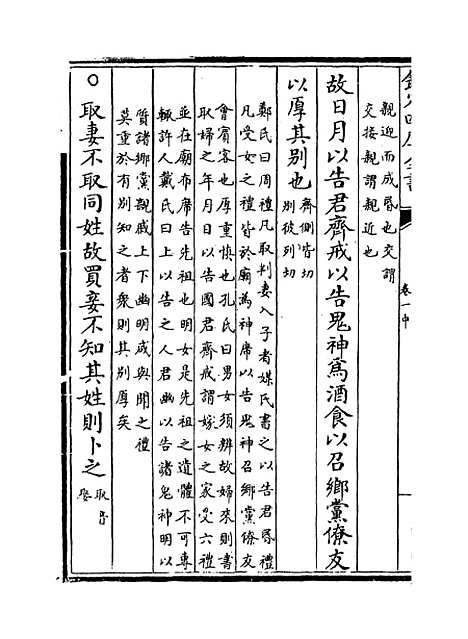 親迎而成昏也交謂
交接親謂親近也
故日月以告君齊戒以告鬼神為酒食以召鄉黨僚友
以厚其别也
齊側皆切
别彼列切
鄭氏曰周禮凡取判妻入子者媒氏書之以告君昏禮
凡受女之禮皆於廟為神席以告鬼神召鄉黨僚友
會賓客也厚重慎也孔氏曰男女須辨故婦來則書
取婦之年月日以告國君齊戒謂嫁女之家受六禮
並在廟布席告先祖也明女是先祖之遺體不可專
輙許人戴氏曰上以告之人君幽以告諸鬼神明以
質諸鄉黨親戚上下幽明咸與聞之禮
莫重於有别知之者衆則其别厚矣
○取妻不取同姓故買妾不知其姓則卜之
卷一中